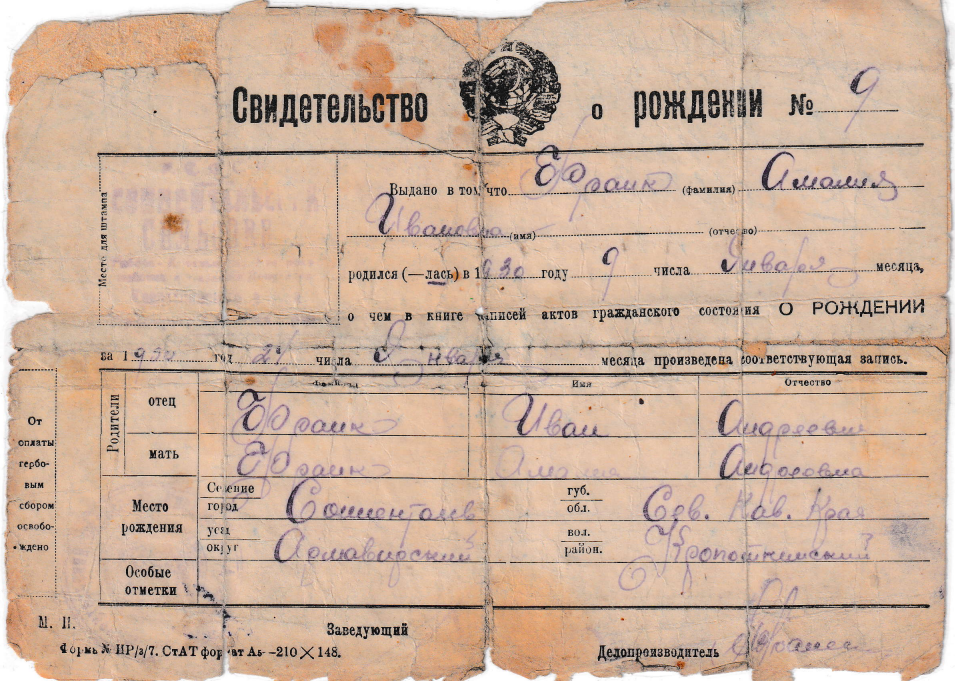 Свидетельство о рождении № 9
Место для штампа
Выдано в том, что Франк (фамилия) Амалия
Ивановна (имя) (отчество)
родился (—лась) в 1930 году 9 числа Января месяца,
о чем в книге записей актов гражданского состояния О РОЖДЕНИИ
за 1930 год 24 числа Января месяца произведена соответствующая запись.
От оплаты гербовым сбором освобождено
Фамилия Имя Отчество
Родители
отец Франк Иван Андреевич
мать Франк Амалия
Место рождения
Селение город губ. обл. Сев. Кав. Края
уезд округ Армавирский вол. район. Кропоткинский
Особые отметки
М. П.
Заведующий
Форма № НР/з/7. СтАТ формат А5—210×148.
Делопроизводитель